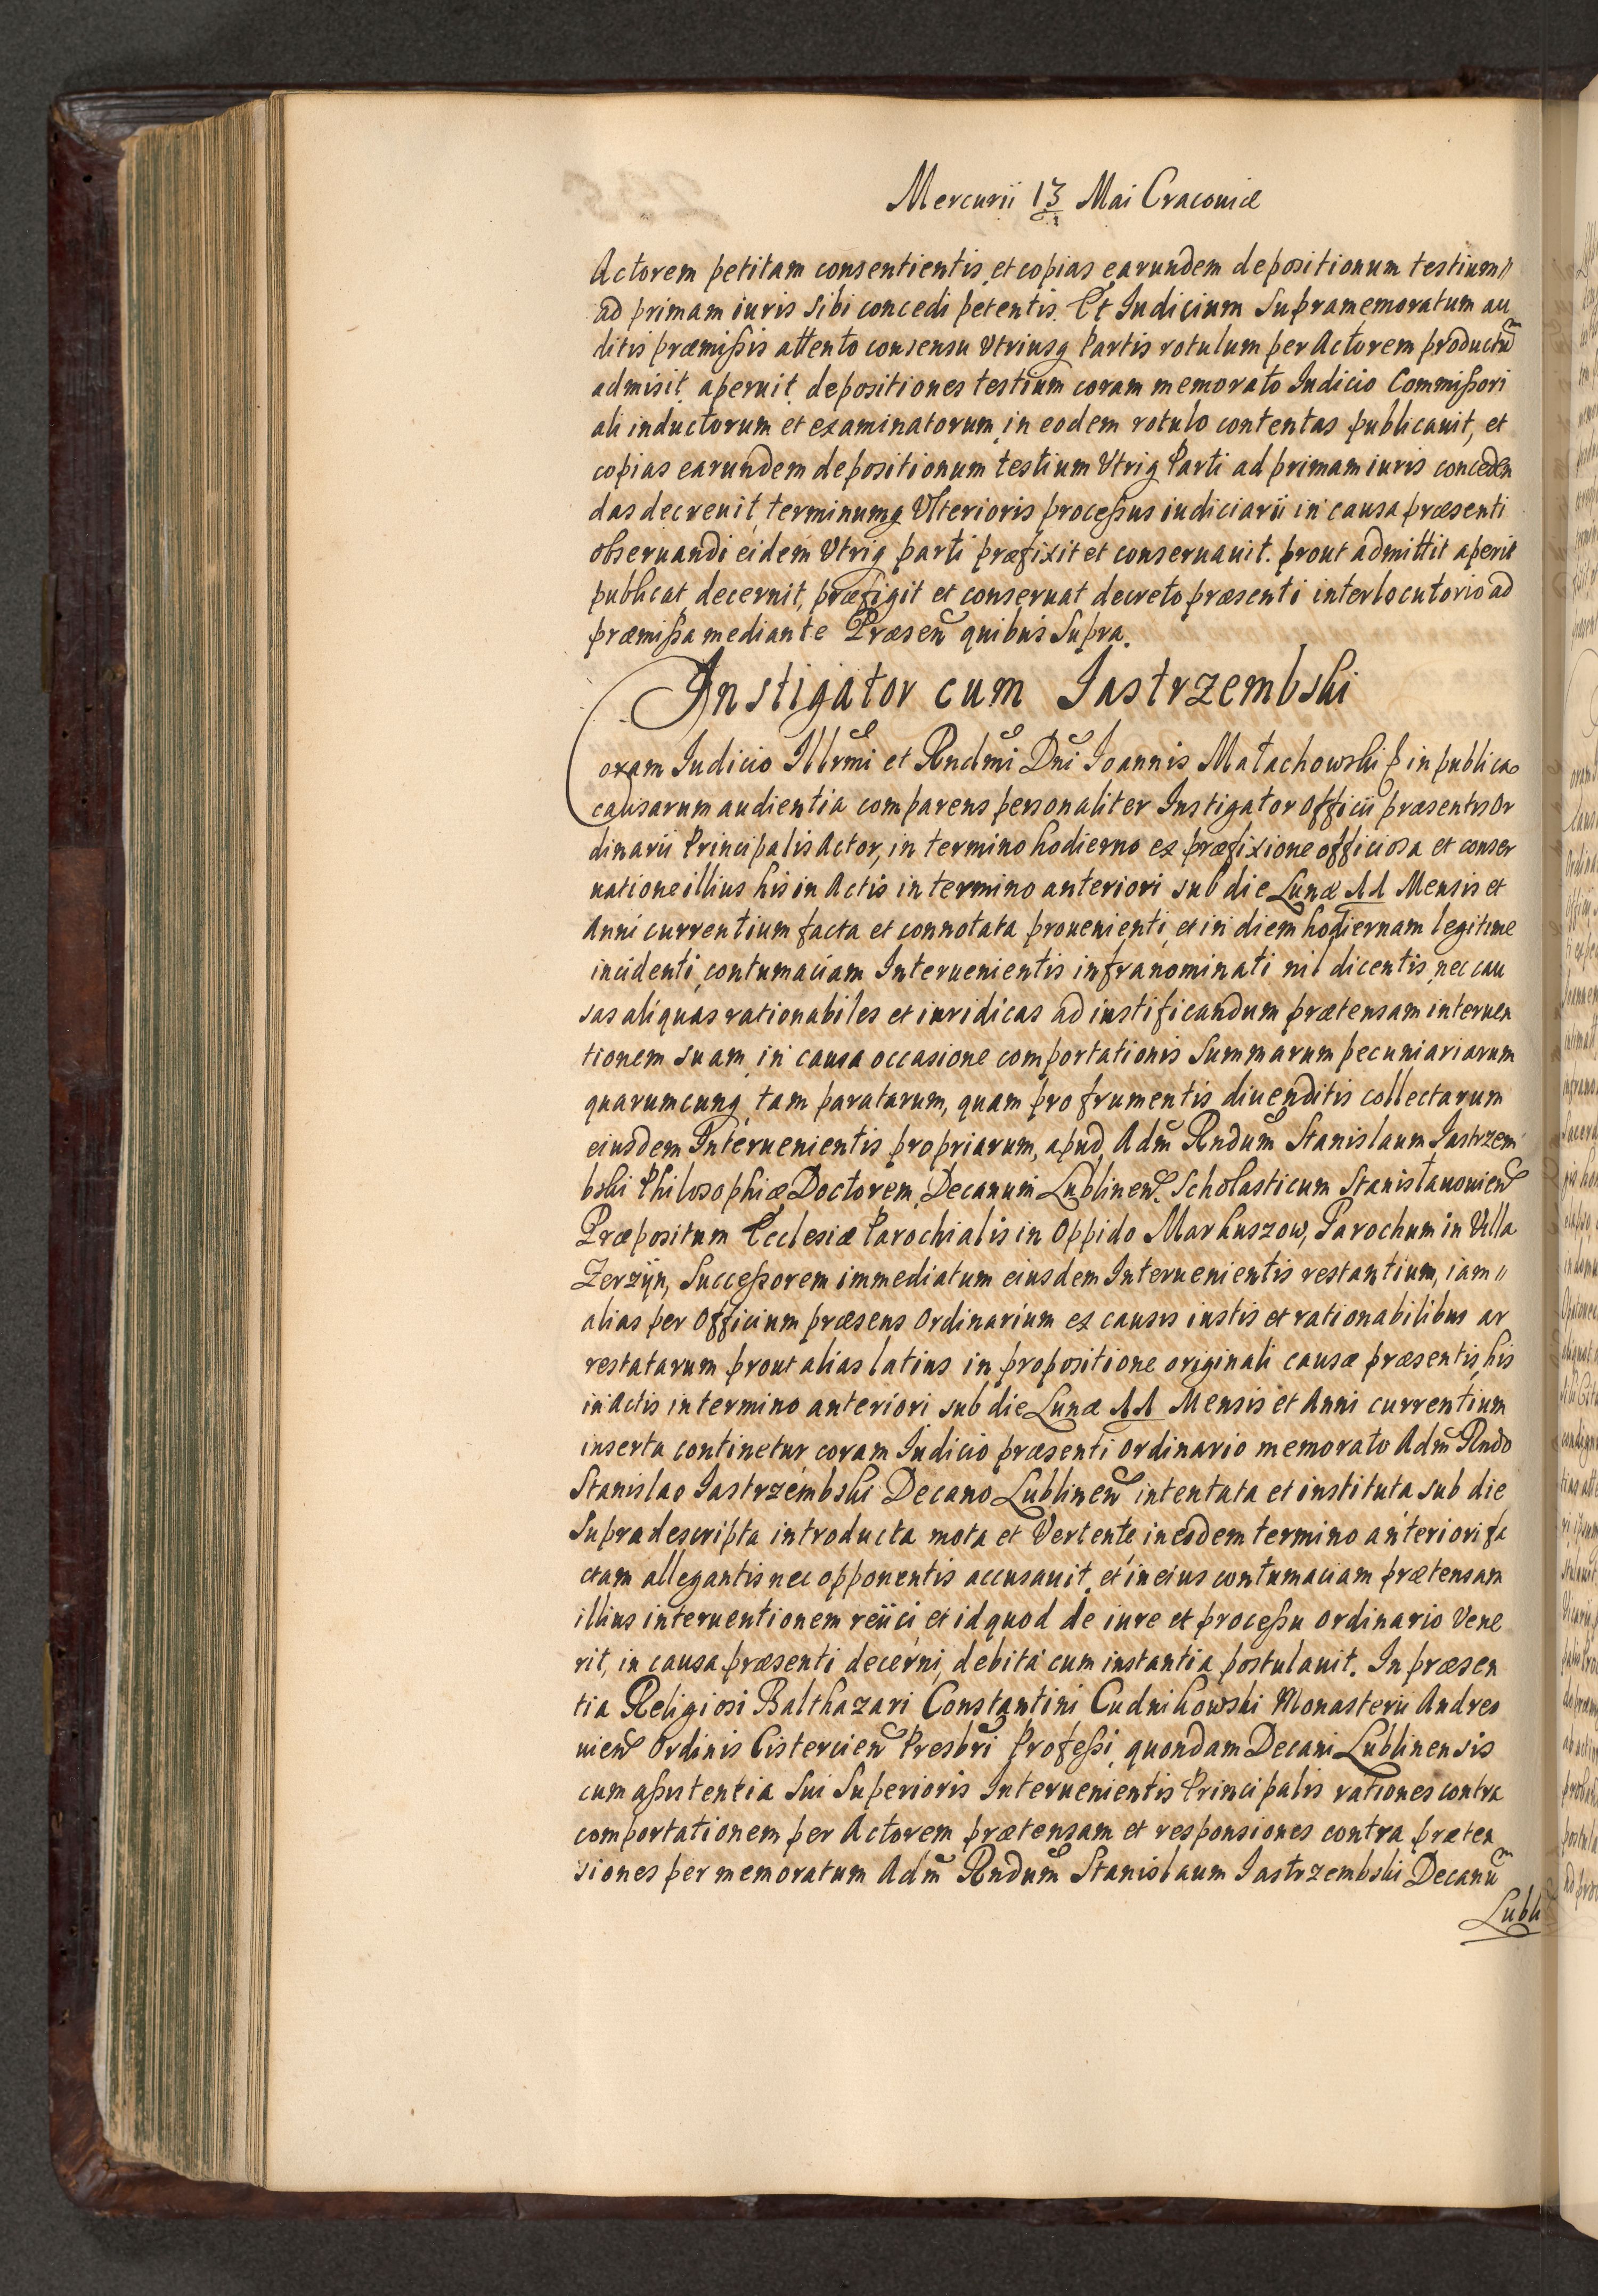 Mercurii 13 Mai Cracouiæ
Actorem petitam consentientis, et copias earundem depositionum testium〃
ad primam iuris sibi concedi petentis. Et Iudicium Supramemoratum au
ditis præmißis attento consensu Vtriusq Partis rotulum per Actorem productũ
admisit, aperuit, depositiones testium coram memorato Iudicio Commißori
ali inductorum et examinatorum, in eodem rotulo contentas publicauit, et
copias earundem depositionum testium Vtriq Parti ad primam iuris conceden
das decreuit, terminumq Vlterioris proceßus iudiciarii in causa præsenti
obseruandi eidem Vtriq parti præfixit et conseruauit. prout admittit aperit
publicat, decernit, præfigit et conseruat decreto præsenti interlocutorio ad
præmißa mediante Præseñ quibus Supra.
Instigator cum Iastrzembski
Coram Iudicio Illrmi et Rndmi Dni Ioannis Małachowski ꝑ in publica
causarum audientia comparens personaliter Instigator Officii præsentis Or
dinarii Principalis Actor, in termino hodierno ex præfixione officiosa et conser
uatione illius his in Actis in termino anteriori sub die Lunæ 11 Mensis et
Anni currentium facta et connotata prouenienti, et in diem hodiernam legitime
incidenti, contumaciam Interuenientis infranominati nil dicentis, nec cau
sas aliquas rationabiles et iuridicas ad iustificandum prætensam interuen
tionem suam, in causa occasione comportationis Summarum pecuniariarum
quarumcunq, tam paratarum, quam pro frumentis diuenditis collectarum
eiusdem Interuenientis propriarum, apud Adm̃ Rndum Stanislaum Iastrzem
bski Philosophiæ Doctorem, Decanum Lublineñ. Scholasticum Stanislauouieñ
Præpositum Ecclesiæ Parochialis in Oppido Markuszow, Parochum in Villa
Zerzyn, Succeßorem immediatum eiusdem Interuenientis restantium, iam〃
alias per Officium præsens Ordinarium ex causis iustis et rationabilibus ar
restatarum prout alias latius in propositione originali causæ præsentis, his
in Actis in termino anteriori sub die Lunæ 11 Mensis et Anni currentium
inserta continetur coram Iudicio præsenti Ordinario memorato Adm̃ Rndo
Stanislao Iastrzembski Decano Lublineñ intentata et instituta sub die
Supradescripta introducta mota et Vertente, in eodem termino anteriori fa
ctam allegantis nec opponentis accusauit, et in eius contumaciam prætensam
illius interuentionem reiici, et id quod de iure et proceßu ordinario Vene
rit, in causa præsenti decerni, debita cum instantia postulauit. In præsen
tia Religiosi Balthazari Constantini Cudnikowski Monasterii Andreo
uieñ Ordinis Cistercieñ Presbri Profeßi, quondam Decani Lublinensis
cum aßistentia Sui Superioris Interuenientis Principalis rationes contra
comportationem per Actorem prætensam et responsiones contra præten
siones per memoratum Adm̃ Rndum Stanislaum Iastrzembski Decanũ
Lubli